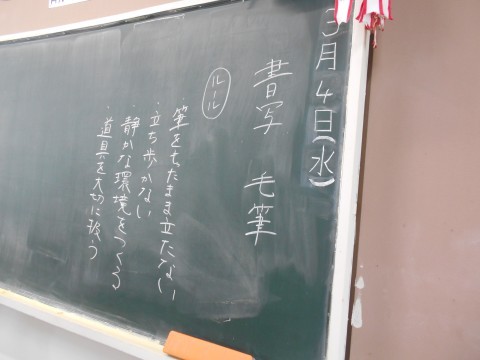 3月4日(水)
書写 毛筆
ルール
筆をもたまま立たない
・立ち歩かない
・静かな環境をつくる
・道具を大切に扱う